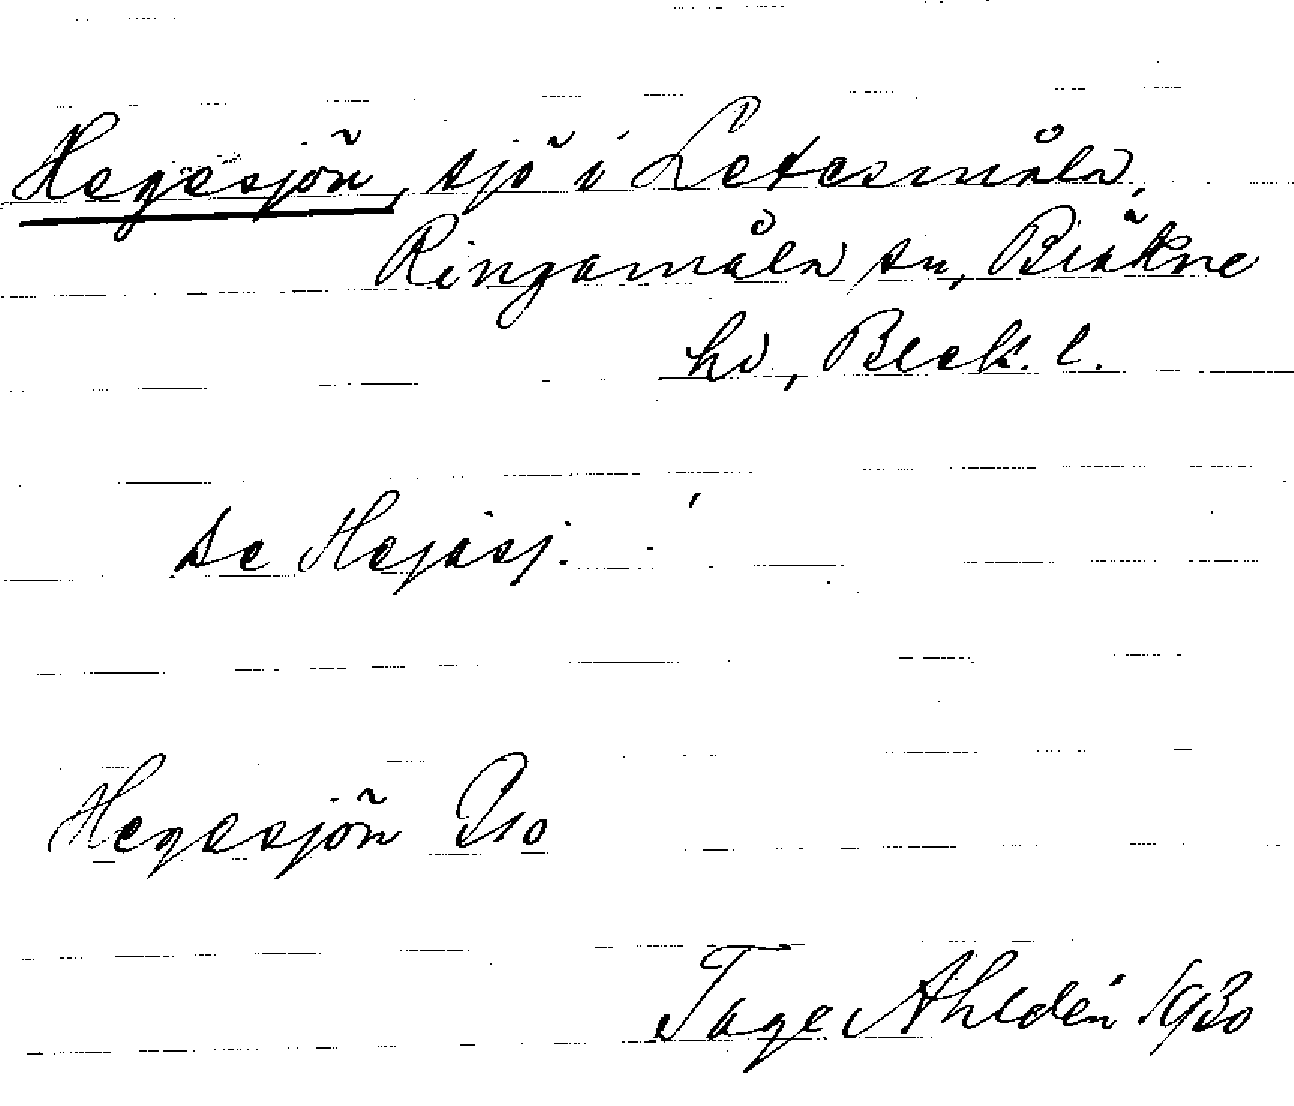 Hegesjön, sjö i Letesmåla,
Ringamåla sn, Bräkne
hd, Blek. l.
Se Hejasj.
Hegesjön
Tage Ahldén 1930